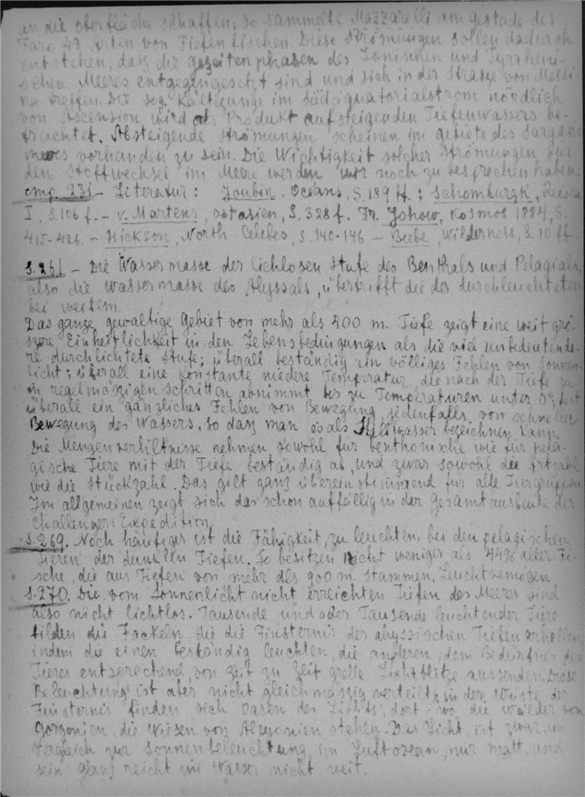 an die oberfläche schaffen; so sammelte Mazzarelli am gestade des
Faro 43 Arten von Tiefenfischen. Diese Strömungen sollen dadurch
entstehen, dass die gezeitenphasen des Jonischen und Tyrrheni-
schen Meeres entgegengesetzt sind und sich in der Strasse von Messi-
na treffen. Die sog. Kaltzunge im Südäquatorialstrom nördlich
von Ascension wird als Produkt aufsteigenden Tiefenwassers be-
trachtet. Absteigende Strömungen scheinen im gebiete des Sargasso
meeres vorhanden zu sein. Die Wichtigkeit solcher Strömungen für
den Stoffwechsel im Meere werden wir noch zu besprochen haben.
cmp. 231 - Literatur: Joubin. Oceans, S. 189 ff; Schomburgk, Reisen
I, S. 106 f. - v. Martens, Ostasien, S. 328 f. Fr. Johow, Kosmos 1884, S.
415-426. - Hickson, North Celebes, S. 140-146 - Beebe, Wilderness, S. 10 ff.
S. 261 - Die Wassermasse der lichlosen Stufe des Benthals und Pelagials,
also die wassermasse des Abyssals, übertrifft die der durchleuchteten
bei weitem.
Das ganze gewaltige Gebiet von mehr als 400 m. Tiefe zeigt eine weit grö-
szere Einheitlichkeit in den Lebensbedingungen als die viel unbedeutende-
re durchlichtete Stufe; überall beständig ein völliges Fehlen von Sonnen-
licht; überall eine konstante niedere Temperatur, die nach der Tiefe zu
in regelmäszigen Schritten abnimmt bis zu Temperaturen unter
überall ein gänzliches Fehlen von Bewegung, jedenfalls von schneller
Bewegung des Wassers, so dasz man es als Stillwasser bezeichnen kann.
Die Mengenverhältnisse nehmen sowohl für benthonische wie für pela-
gische Tiere mit der Tiefe beständig ab, und zwar sowohl die Artzahl
wie die Stückzahl. Das gilt ganz übereinstimmend für alle Tiergruppen.
Im allgemeinen zeigt sich das schon auffällig in der Gesamtausbeute der
Challenger Expedition.
S. 269. Noch häufiger ist die Fähigkeit zu leuchten bei den pelagischen
Tieren der dunklen Tiefen. So besitzen nicht weniger als 44% aller Fi-
sche, die aus Tiefen von mehr als 900 m. stammen, Leuchtvermögen
S. 270. Die vom Sonnenlicht nicht erreichten Tiefen des Meeres sind
also nicht lichtlos. Tausende und aber Tausende leuchtender Tiere
bilden die Fackeln, die die Finsternis der abyssischen Tiefen erhellen,
indem die einen beständig leuchten, die anderen, dem Bedürfnis des
Tieres entsprechend, von Zeit zu Zeit grelle Lichtblitze aussenden. Diese
Beleuchtung ist aber nicht gleichmäszig verteilt; in der Wüste der
Finsternis finden sich Oasen des Lichts, dort wo die Wälder von
Gorgonien, die Wiesen von Alcyonien stehen. Das Licht ist zwar, im
Vergleich zur Sonnenbeleuchtung im Luftozean, nur matt, und
sein glanz reicht im Wasser nicht weit.